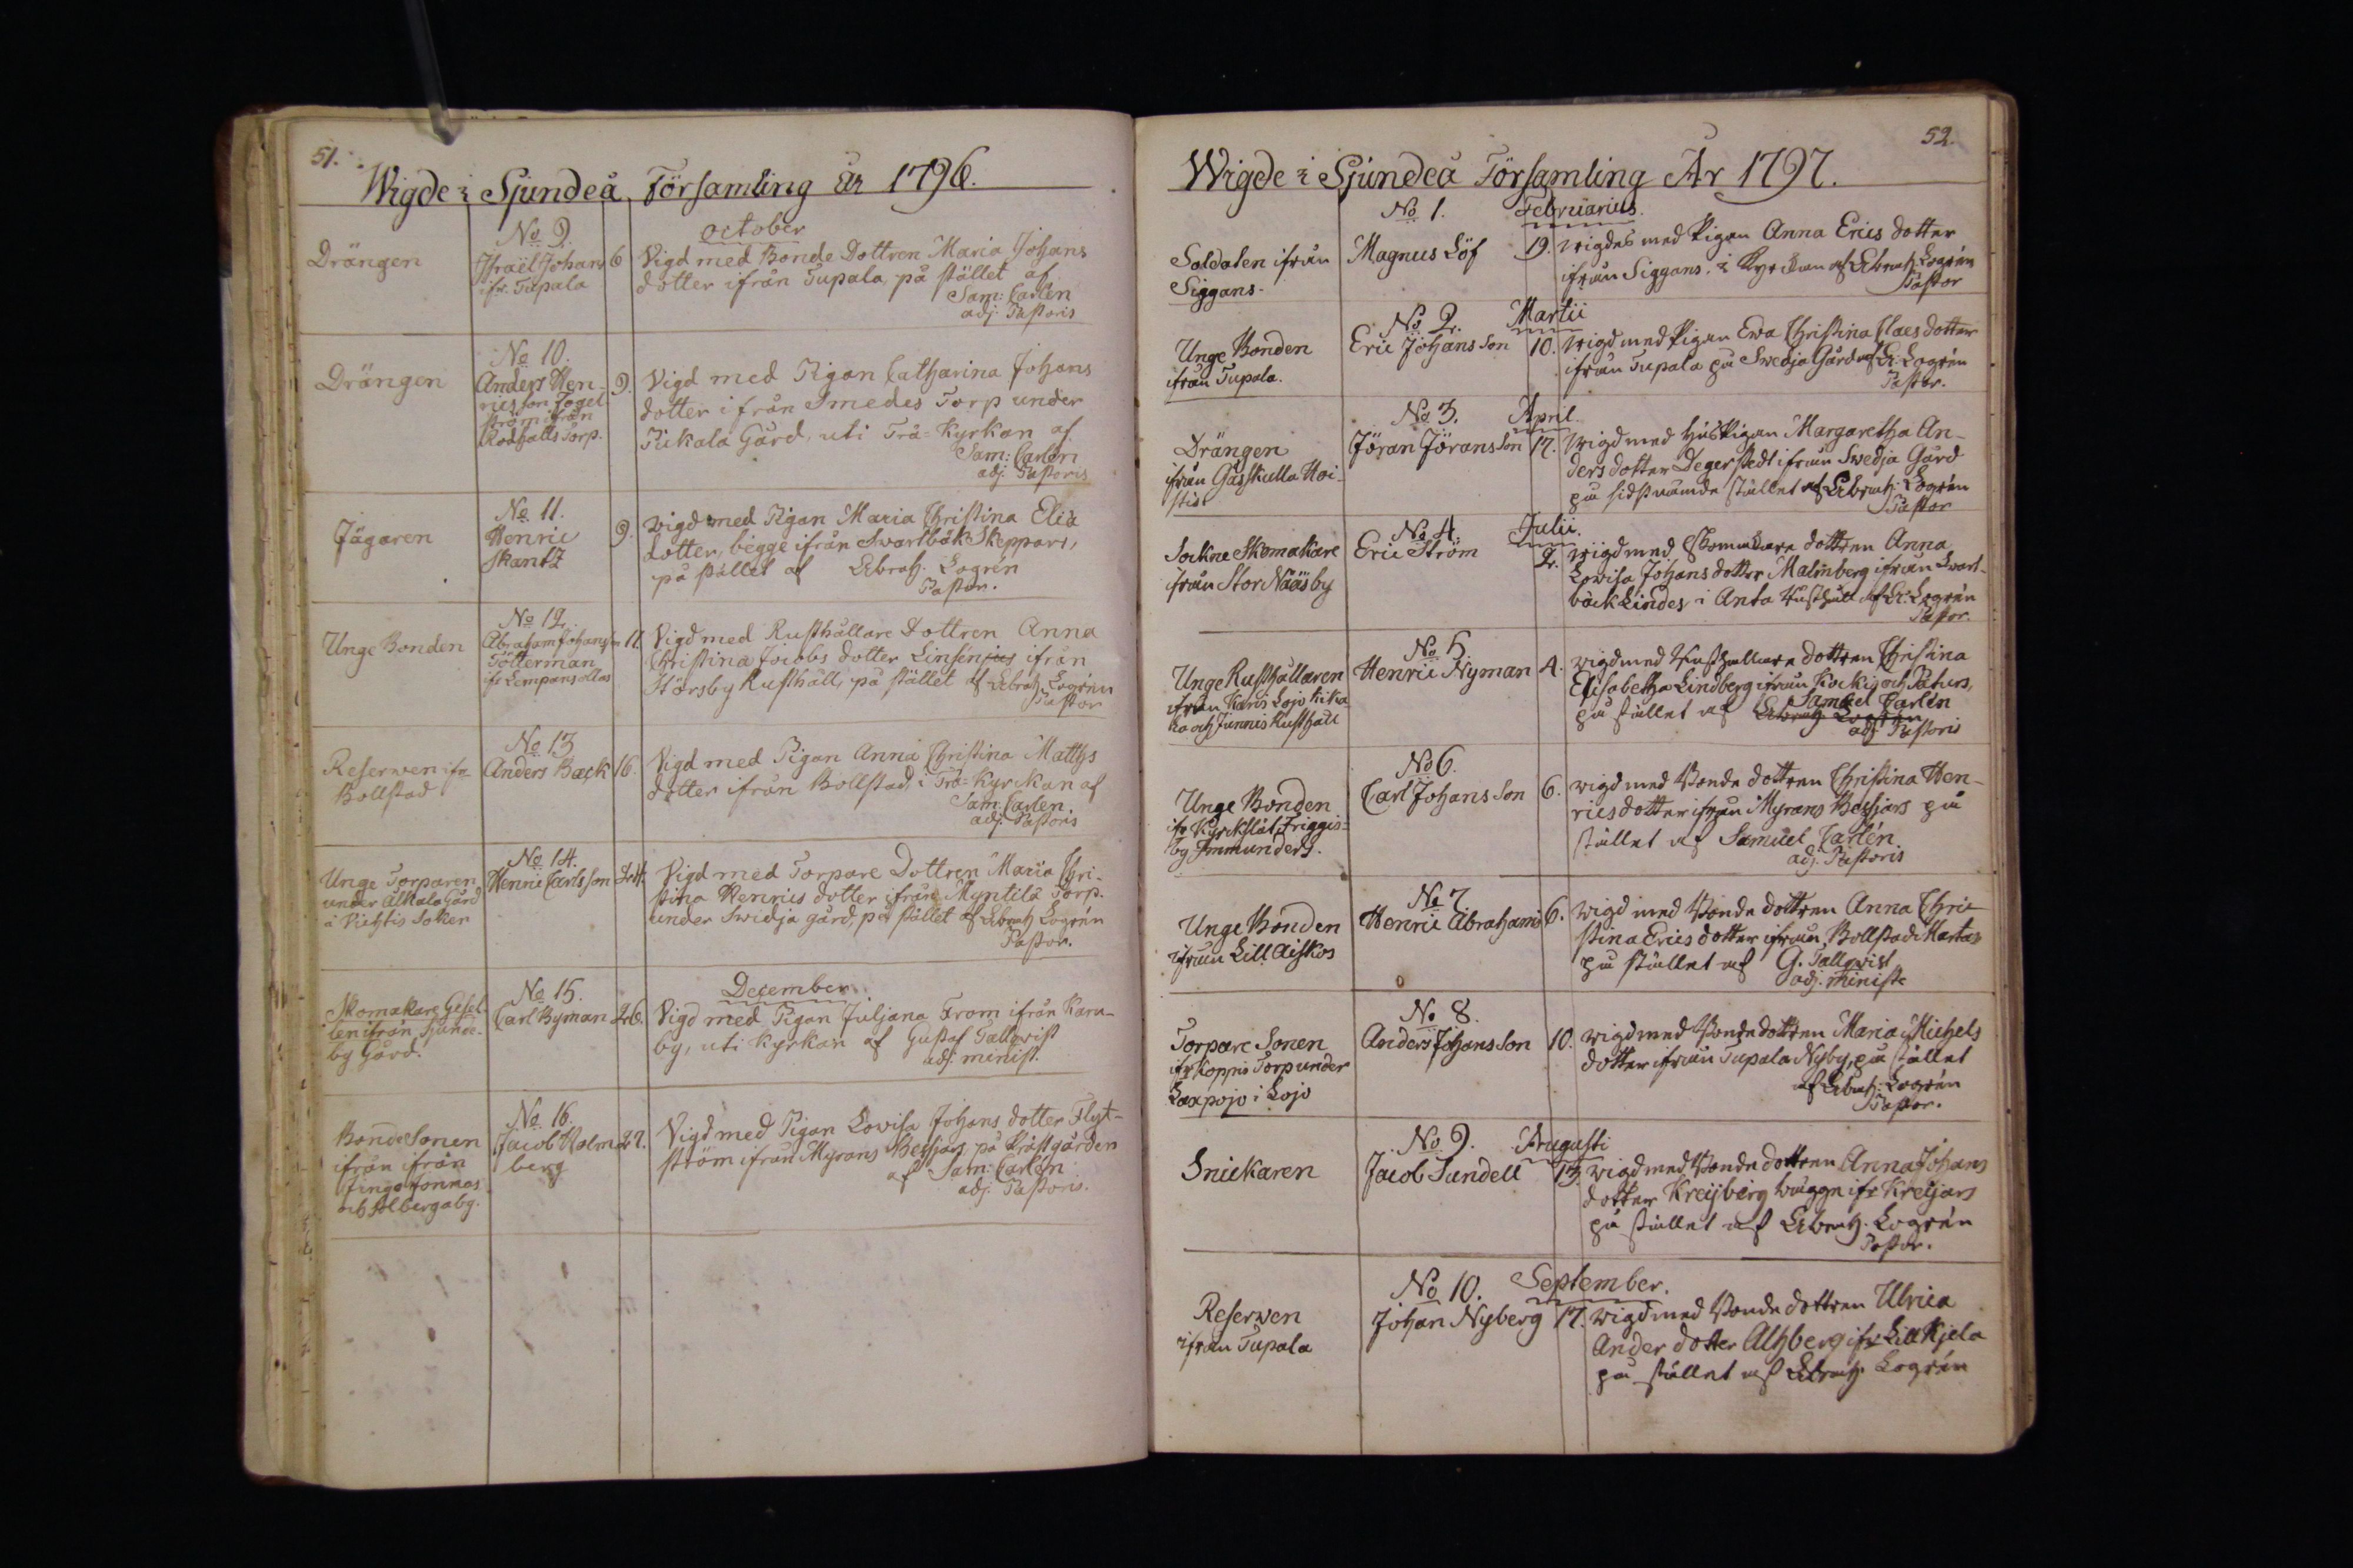 51.
Wigde i Sjundeå Församling År 1796.
October
No 9.
Drängen
Israël Johans
ifr. Tupala
6
Vigd med Bonde Dottren Maria Johans
dotter ifrån Tupala, på stället af
Sam: Carlen
adj. Pastoris
No 10.
Drängen
Anders Hen-
rics son Fogel-
ström ifrån
Rödhalls Torp.
9.
Vigd med Pigan Catharina Johans
dotter ifrån Smedes Torp under
Pickala Gård, uti Trä-Kyrkan af
Sam: Carlén
adj. Pastoris
No 11.
Jägaren
Henric
Skantz
9.
vigd med Pigan Maria Christina Eliæ
dotter, begge ifrån Swartbäk Skeppars,
på stället af Abrah. Logrén
Pastor.
No 12.
Unge Bonden
Abraham Johansson
Tötterman
ifr Lempansollas
11.
Vigd med Rusthållare Dottren Anna
Christina Jacobs dotter Linsén ifrån
Störsby Rusthåll, på stället af Abrah. Logrén
Pastor
No 13
Reserwen ifr
Bollstad
Anders Back
16.
Vigd med Pigan Anna Christina Matths
dotter ifrån Bollstad, i Trä-Kyrckan af
Sam: Carlen.
adj. Pastoris
No 14.
Unge Torparen
under Alkala Gård
i Vichtis Soken
Henric Carls son
24.
Vigd med Torpare Dottren Maria Chri-
stina Henrics dotter ifrån Myntilä Torp.
under Swidja gård, på stället af Abrah Logrén
Pastor.
December.
No 15.
Skomakare Gesel-
len ifrån Sjunde-
by Gård.
Carl Byman
26.
Vigd med Pigan Juljana From ifrån Karu-
by, uti Kyrkan af Gustaf Tallqvist
adj. minist.
No 16.
Bonde Sonen
ifrån ifrån
Finge Jonnas
och Ahlbergaby.
Jacob Holm-
berg
27.
Vigd med Pigan Lowisa Johans dotter Flyt-
ström ifrån Myrans Beijars, på Prästgården
af Sam: Carlén
adj. Pastoris.
52.
Wigde i Sjundeå Församling År 1797.
No 1. Februarius.
Soldaten ifrån
Siggans.
Magnus Löf
19.
vigdes med Pigan Anna Erics dotter
ifrån Siggans. i Kyrckan af Abrah. Logrén
Pastor
No 2. Martii
Unge Bonden
ifrån Tupala.
Eric Johans son
10.
vigd med Pigan Ewa Christina Claes dotter
ifrån Tupala på Swedja Gård af A. Logrén
Pastor.
No 3. April.
Drängen
ifrån Gåsskulla Hoi-
stis
Jöran Jörans son
17.
Wigd med Huspigan Margaretha An-
ders dotter Degerstedt ifrån Swedja Gård
på sidstnämde stället af Abrah. Logrén
Pastor
No 4. Julii.
Sockne Skomakare
ifrån Stor Nääsby
Eric Ström
2.
wigd med Skomakare dottren Anna
Lowisa Johans dotter Malmberg ifrån Swart-
bäck Lindes, i Anta Rusthåll af A. Logrén
Pastor.
No 5.
Unge Rusthållaren
ifrån Karis Lojo Kika-
la och Junnis Rusthåll
Henric Nyman
4.
wigd med Rusthållare dottren Christina
Elisabetha Lindberg ifrån Kockis och Paturs,
på stället af Abrah Logrén Samuel Carlén
adj. Pastoris
No 6.
Unge Bonden
ifr Kyrkslät, Friggis-
by Ammunders.
Carl Johans son
6.
wigd med Bonde dottren Christina Hen-
ricsdotter ifrån Myrans Beijars på
stället af Samuel Carlén.
adj. Pastoris
No 7
Unge Bonden
ifrån Lill Aiskos
Henric Abrahams
6.
wigd med Bonde dottren Anna Chri-
stina Erics dotter ifrån Bollstad Martas
på stället af G. Tallqvist
adj. ministr
No 8.
Torpare Sonen
ifr Koppis Torp under
Laxpojo i Lojo
Anders Johans son
10.
wigd med Bonde dottren Maria Michels
dotter ifrån Tupala Nyby, på stället
af Abrah. Logrén
Pastor.
No 9. Augusti
Snickaren
Jacob Sundell
13.
wigd med Bonde dottren Anna Johans
dotter Kreijberg bägge ifr Kreijars
på stället af Abrah. Logrén
Pastor.
No 10. September.
Reserwen
ifrån Tupala
Johan Nyberg
17.
wigd med Bonde dottren Ulrica
Ander dotter Althberg ifr Lill Kjela
på stället af Abrah. Logrén